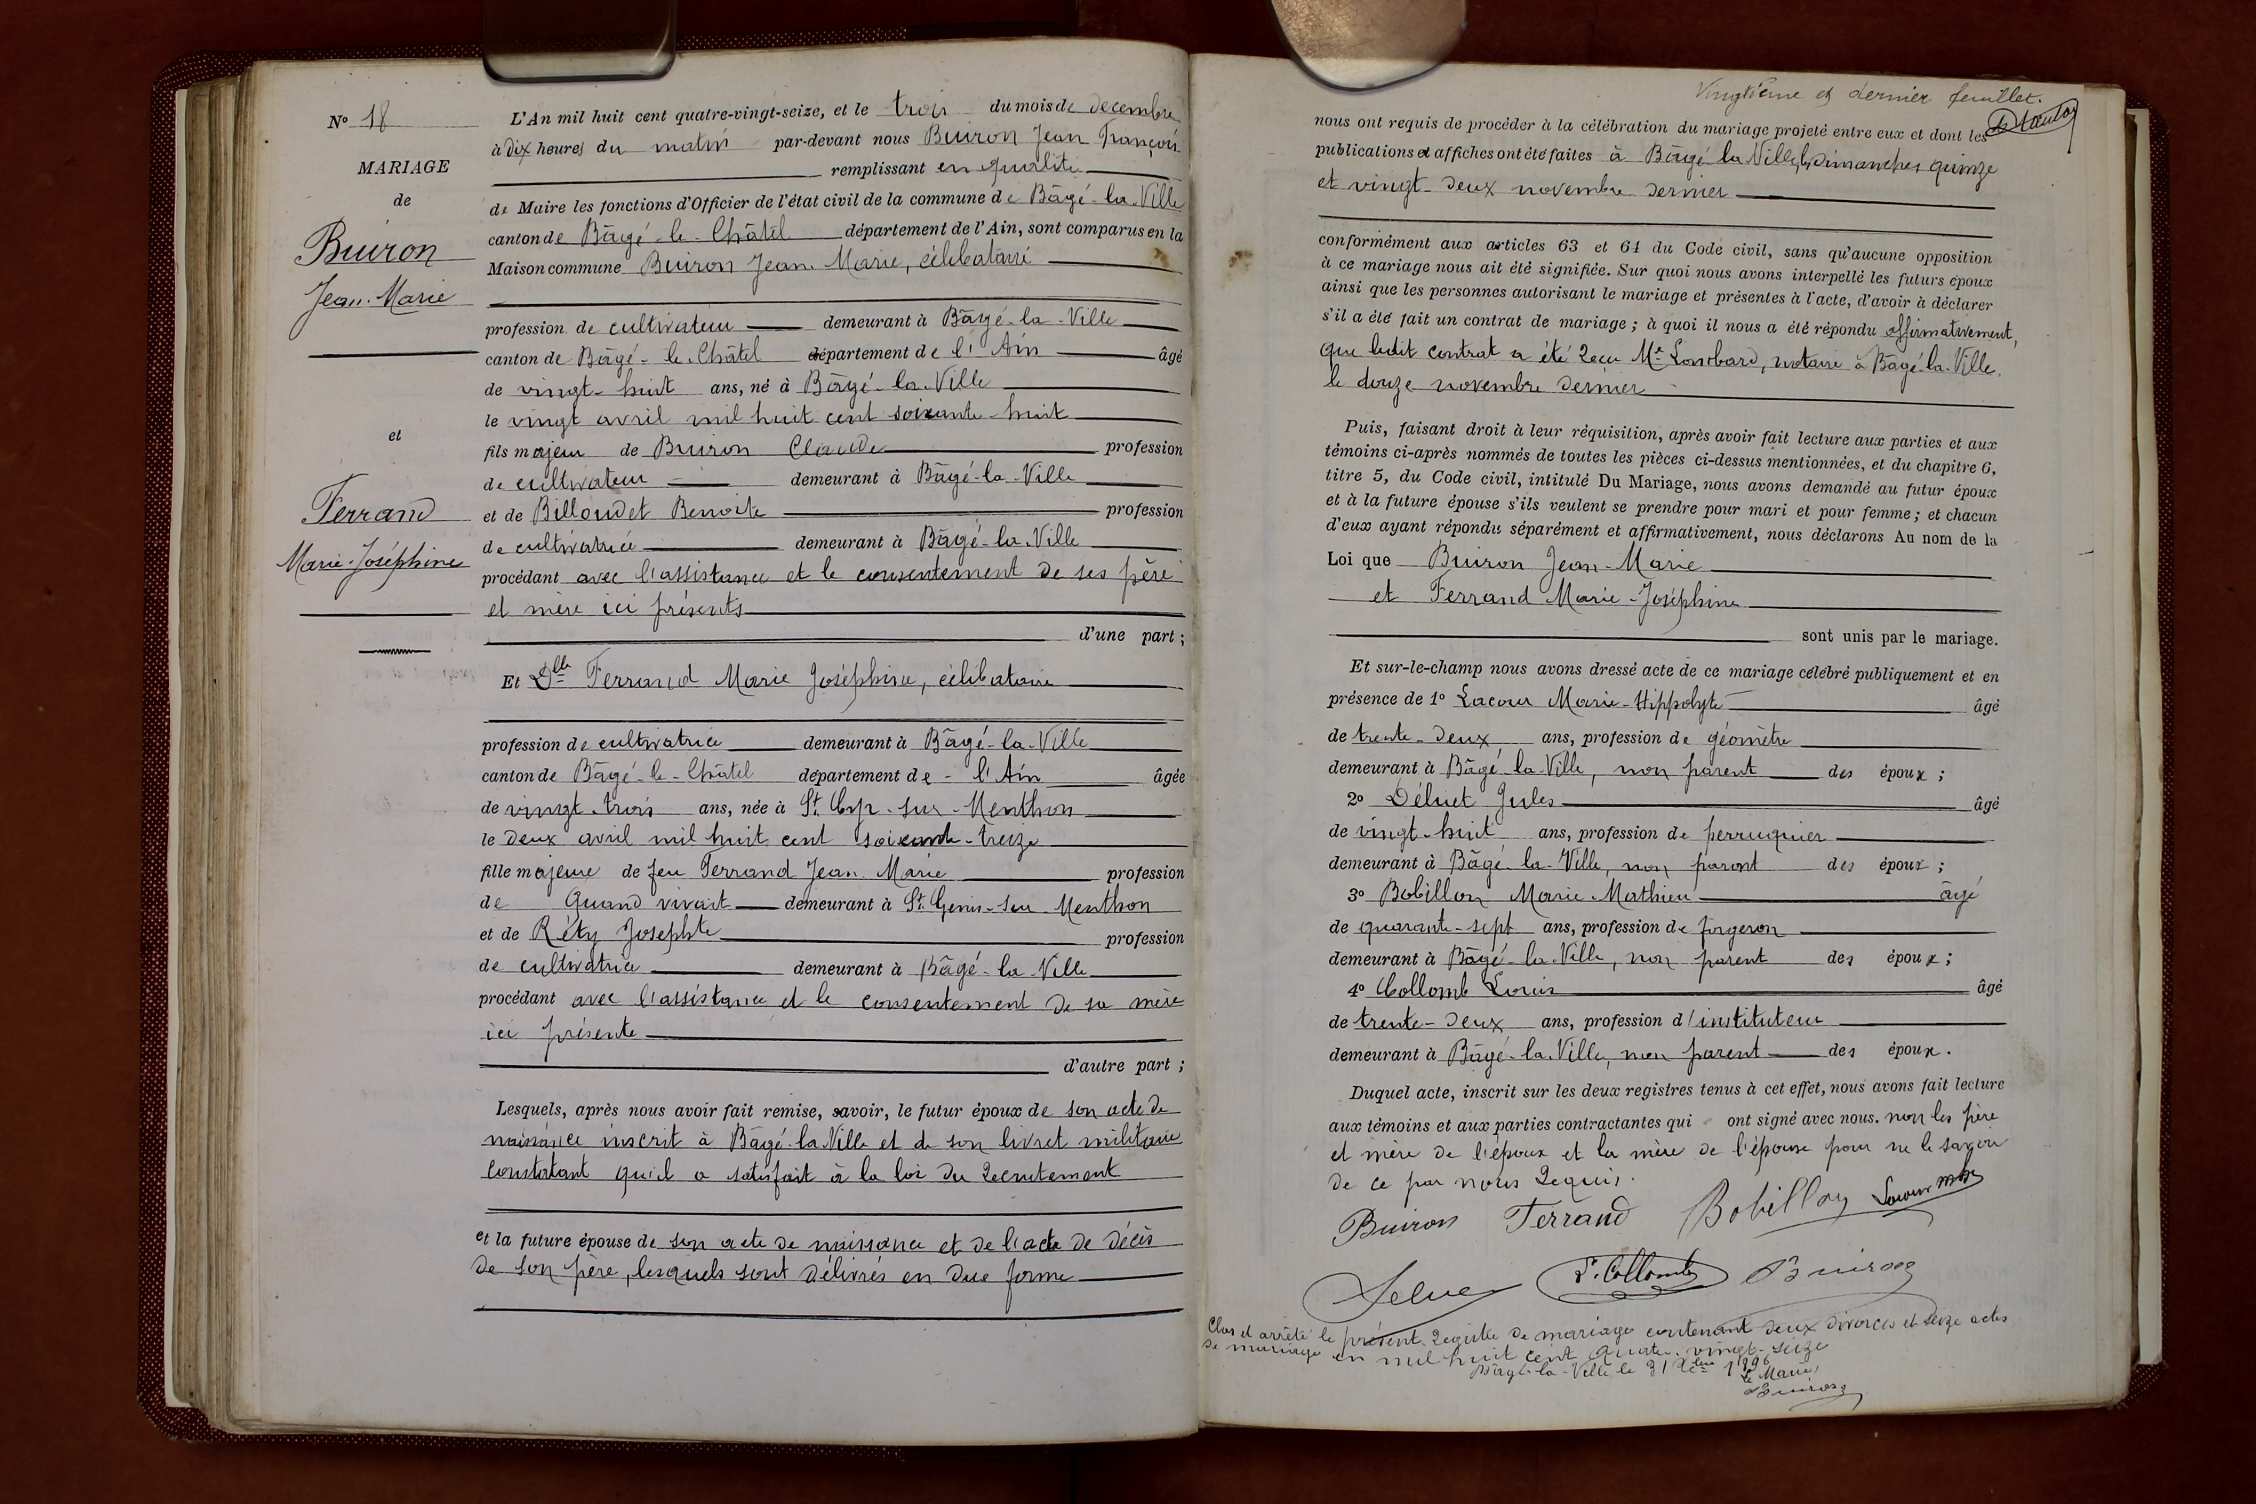 N° 18
MARIAGE
de
Buiron
Jean-Marie
et
Ferrand
Marie-Joséphine
L'An mil huit cent quatre-vingt-seize, et le trois du mois de décembre
à dix heures du matin par-devant nous Buiron Jean François
remplissant en qualité
de Maire les fonctions d'Officier de l'état civil de la commune de Bâgé-la-Ville
canton de Bâgé-le-Châtel département de l'Ain, sont comparus en la
Maison commune Buiron Jean-Marie, célibataire
profession de cultivateur demeurant à Bâgé-la-Ville
canton de Bâgé-le-Châtel département de l'Ain âgé
de vingt-huit ans, né à Bâgé-la-Ville
le vingt avril mil huit cent soixante-huit
fils majeur de Buiron Claude profession
de cultivateur demeurant à Bâgé-la-Ville
et de Billoudet Benoite profession
de cultivatrice demeurant à Bâgé-la-Ville
procédant avec l'assistance et le consentement de ses père
et mère ici présents
d'une part ;
Et Dlle Ferrand Marie Joséphine, célibataire
profession de cultivatrice demeurant à Bâgé-la-Ville
canton de Bâgé-le-Châtel département de - l'Ain âgée
de vingt-trois ans, née à St Cyr-sur-Menthon
le deux avril mil huit cent soixante-treize
fille majeure de feu Ferrand Jean-Marie profession
de Quand vivait demeurant à St Genis-sur-Menthon
et de Réty Josephte profession
de cultivatrice demeurant à Bâgé-la-Ville
procédant avec l'assistance et le consentement de sa mère
ici présente
d'autre part ;
Lesquels, après nous avoir fait remise, savoir, le futur époux de son acte de
naissance inscrit à Bâgé-la-Ville et de son livret militaire
constatant qu'il a satisfait à la loi du recrutement
et la future épouse de son acte de naissance et de l'acte de décès
de son père, lesquels sont délivrés en due forme
Vingtième et dernier feuillet.
nous ont requis de procéder à la célébration du mariage projeté entre eux et dont les
publications et affiches ont été faites à Bâgé la Ville, les dimanches quinze
et vingt-deux novembre dernier
conformément aux articles 63 et 64 du Code civil, sans qu'aucune opposition
à ce mariage nous ait été signifiée. Sur quoi nous avons interpellé les futurs époux
ainsi que les personnes autorisant le mariage et présentes à l'acte, d'avoir à déclarer
s'il a été fait un contrat de mariage ; à quoi il nous a été répondu affirmativement,
que ledit contrat a été reçu Me Lombard, notaire à Bâgé-la-Ville,
le douze novembre dernier
Puis, faisant droit à leur réquisition, après avoir fait lecture aux parties et aux
témoins ci-après nommés de toutes les pièces ci-dessus mentionnées, et du chapitre 6,
titre 5, du Code civil, intitulé Du Mariage, nous avons demandé au futur époux
et à la future épouse s'ils veulent se prendre pour mari et pour femme ; et chacun
d'eux ayant répondu séparément et affirmativement, nous déclarons Au nom de la
Loi que Buiron Jean-Marie
et Ferrand Marie-Joséphine
sont unis par le mariage.
Et sur-le-champ nous avons dressé acte de ce mariage célébré publiquement et en
présence de 1° Lacour Marie-Hippolyte âgé
de trente-deux ans, profession de géomètre
demeurant à Bâgé-la-Ville, non parent des époux ;
2° Déluet Jules âgé
de vingt-huit ans, profession de perruquier
demeurant à Bâgé-la-Ville, non parent des époux ;
3° Bobillon Marie-Mathieu âgé
de quarante-sept ans, profession de forgeron
demeurant à Bâgé-la-Ville, non parent des époux ;
4° Collomb Louis âgé
de trente-deux ans, profession d'instituteur
demeurant à Bâgé-la-Ville, non parent des époux.
Duquel acte, inscrit sur les deux registres tenus à cet effet, nous avons fait lecture
aux témoins et aux parties contractantes qui ont signé avec nous. non les père
et mère de l'époux et la mère de l'épouse pour ne le savoir
de ce par nous requis.
Buiron Ferrand Bobillon Lacour
L. Collomb Buiron
Clos et arrêté le présent registre de mariage contenant deux divorces et seize actes
de mariage en mil huit cent quatre-vingt-seize
Bâgé-la-Ville le 31 Xbre 1896
Le Maire,
Buiron